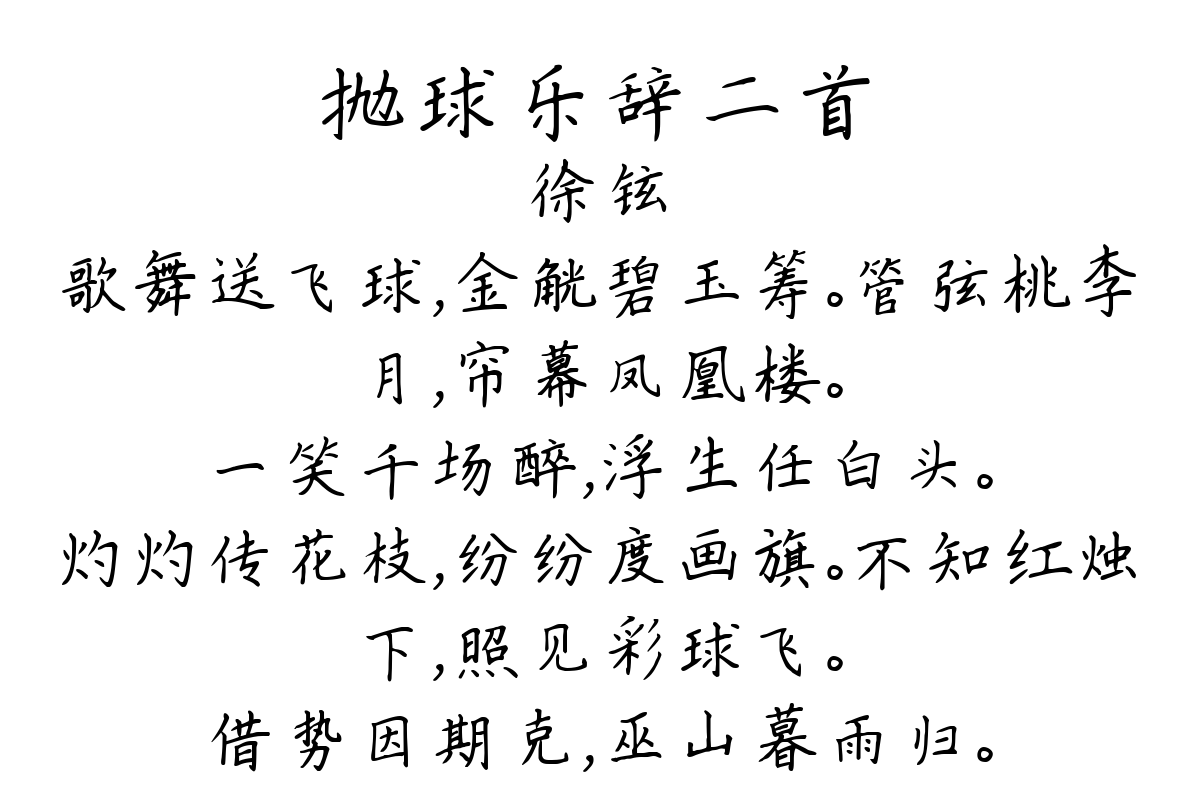 抛球乐辞二首
徐铉
歌舞送飞球,金觥碧玉筹。管弦桃李
月,帘幕凤凰楼。
一笑千场醉,浮生任白头。
灼灼传花枝,纷纷度画旗。不知红烛
下,照见彩球飞。
借势因期克,巫山暮雨归。